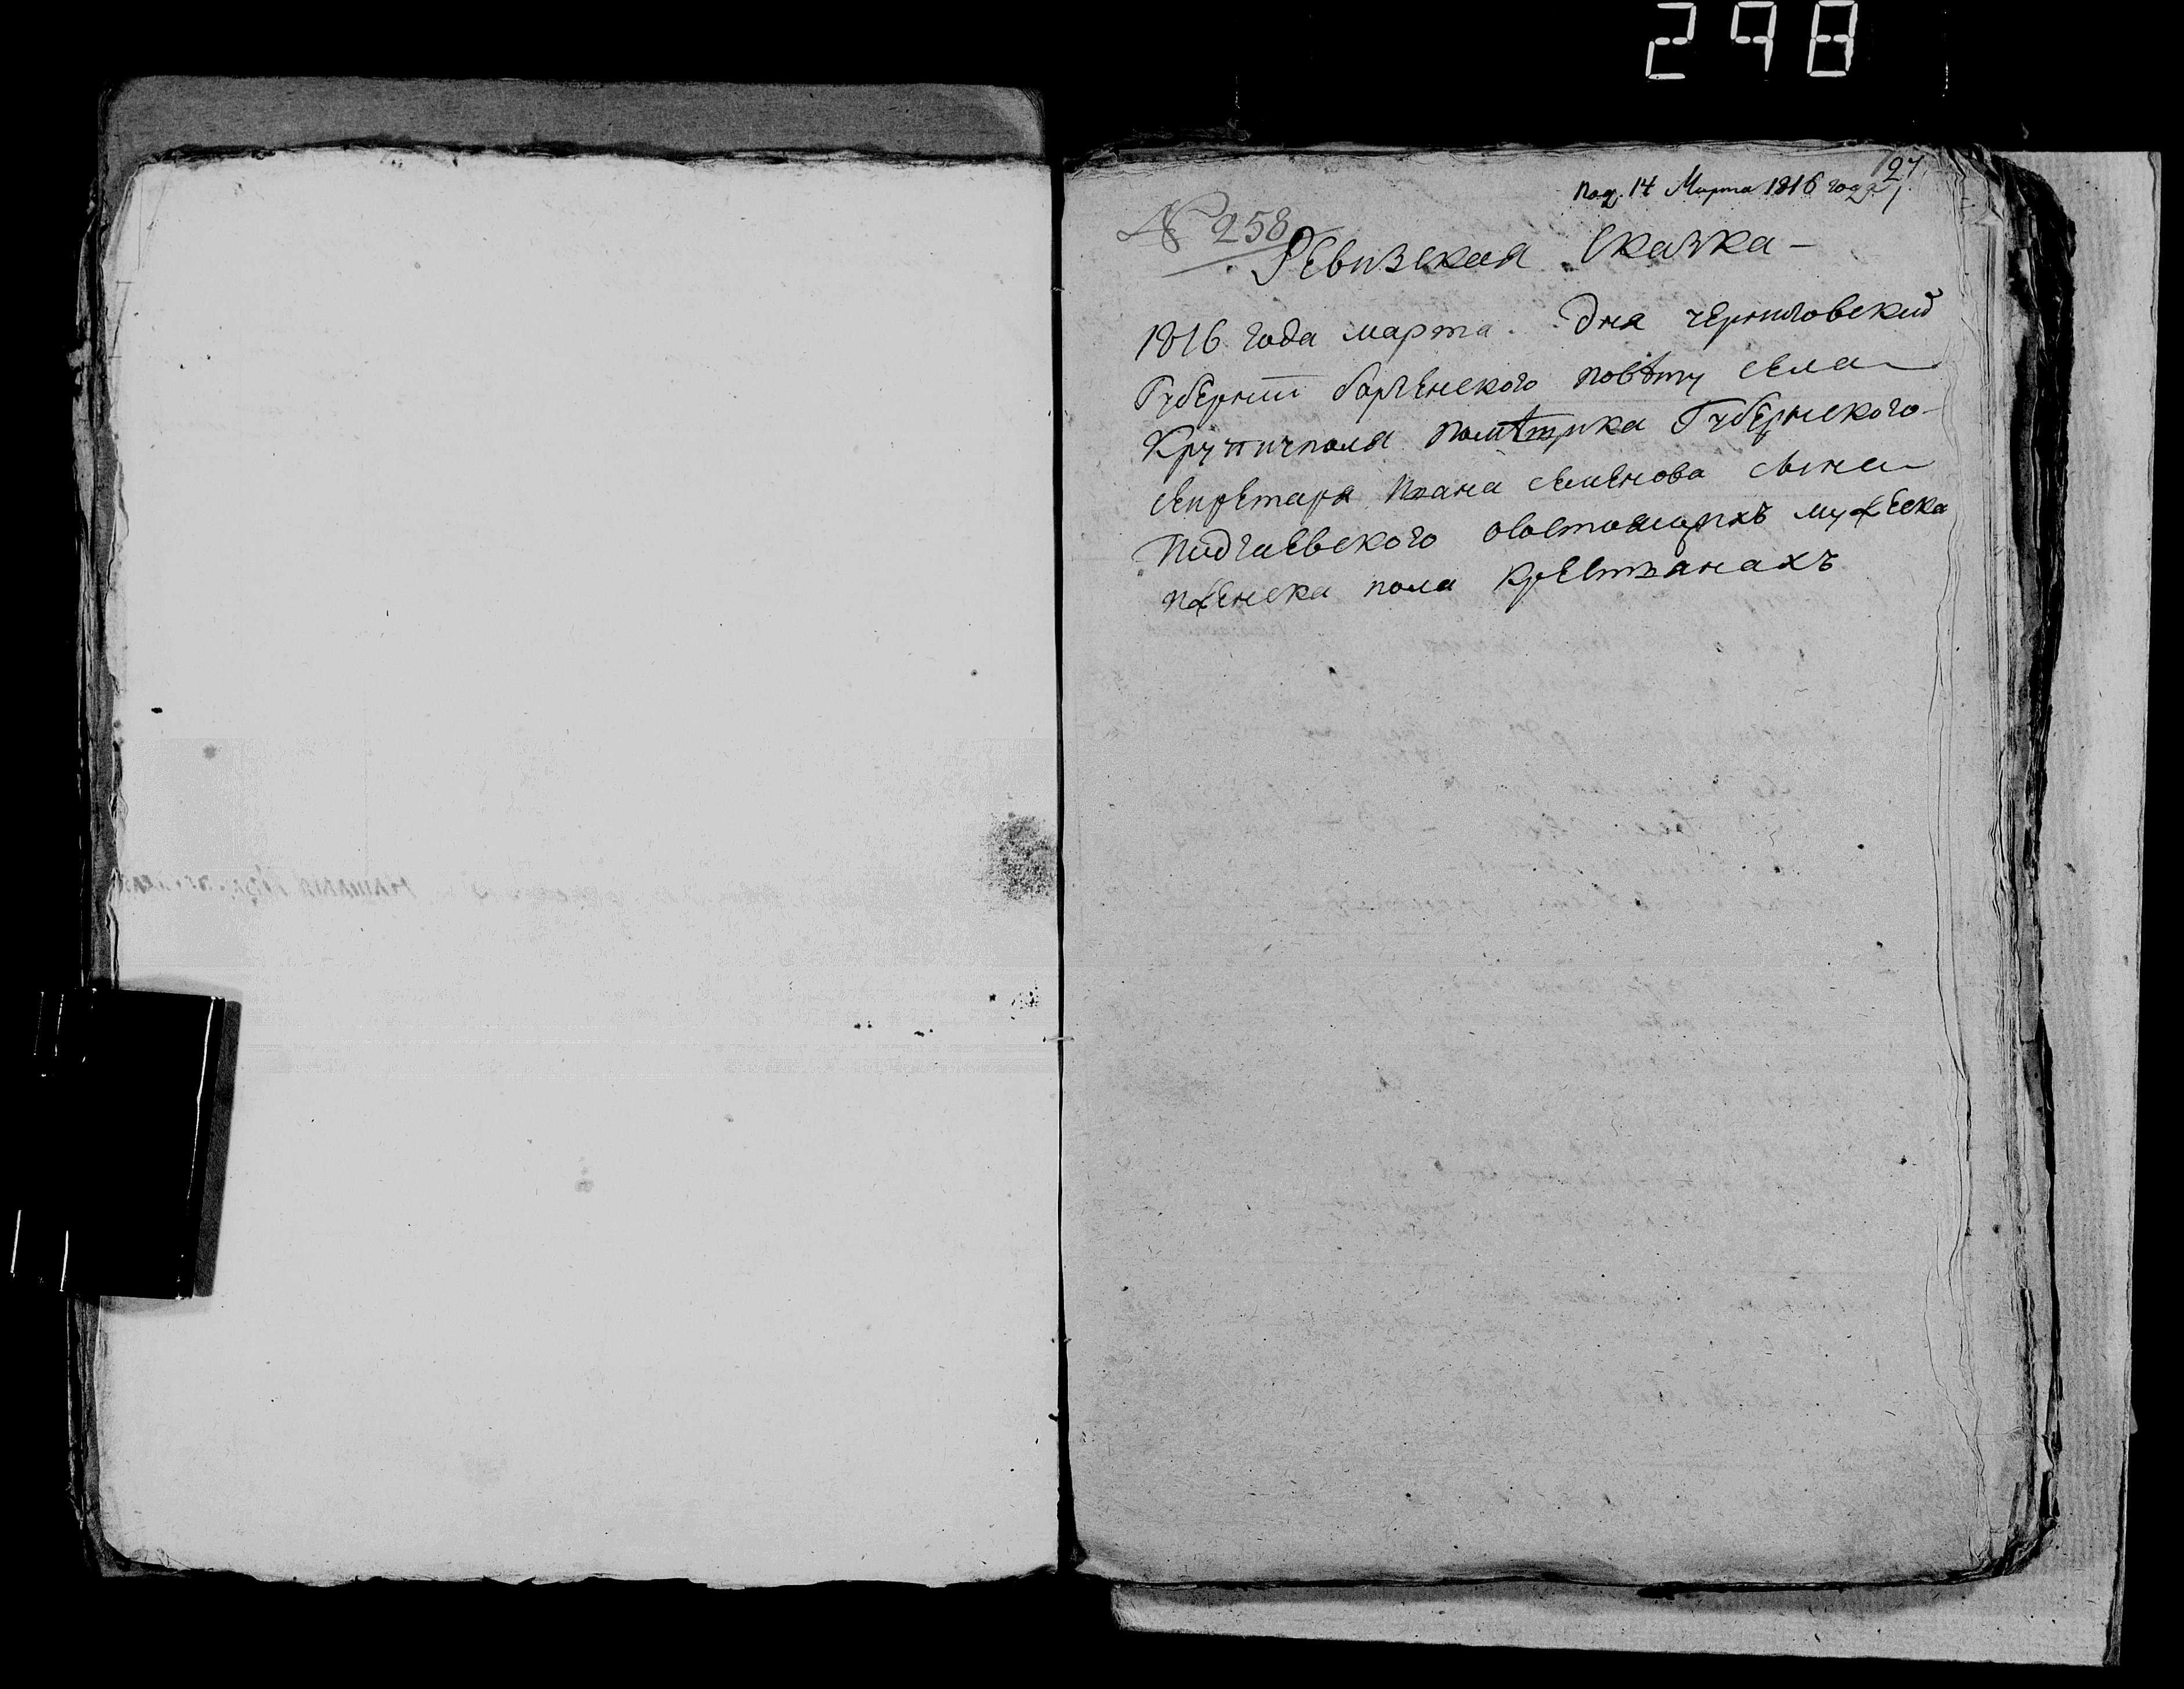 298
27
Под. 14 Марта 1816 года
№ 258
Ревизская Сказка —
1816 года марта . Дня черниговский
Губернии борзенского повѣту села
Крупичполя помѣщика Губернского
секретаря Ивана семенова сына
Пидгаевского осостоящихъ мужеска
иженска пола крестянахъ